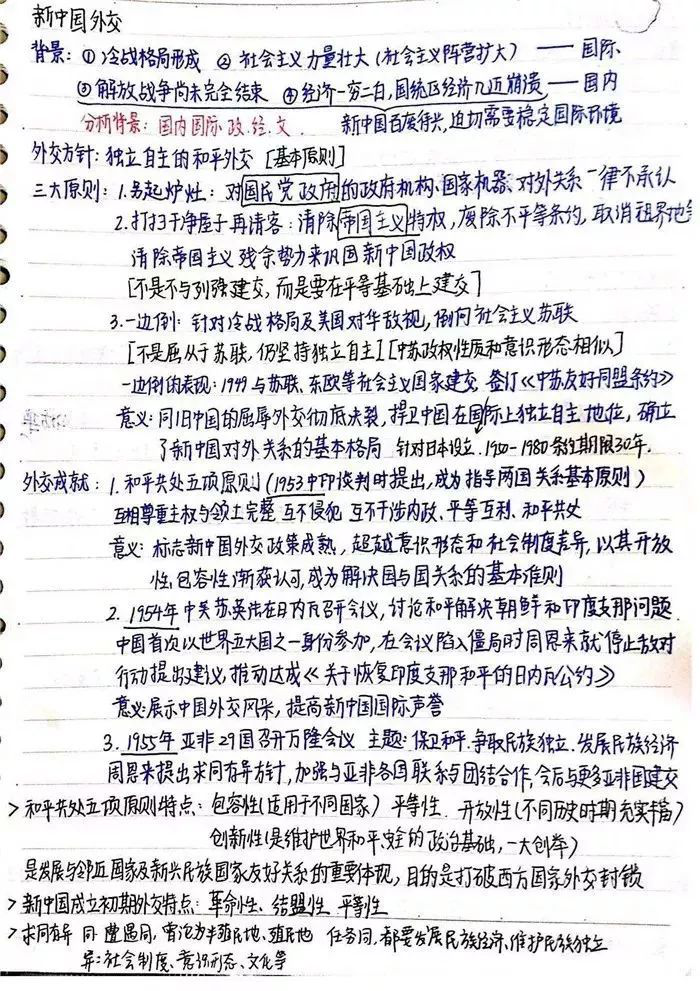 新中国外交
背景：① 冷战格局形成 ② 社会主义力量壮大（社会主义阵营扩大）—— 国际
③ 解放战争尚未完全结束 ④ 经济一穷二白，国统区经济几近崩溃 —— 国内
分析背景：国内国际、政、经、文. 新中国百废待兴，迫切需要稳定国际环境
外交方针：独立自主的和平外交 [基本原则]
三大原则：1. 另起炉灶：对国民党政府的政府机构、国家机器、对外关系一律不承认
2. 打扫干净屋子再请客：清除帝国主义特权，废除不平等条约，取消租界地
清除帝国主义残余势力来巩固新中国政权
[不是不与列强建交，而是要在平等基础上建交]
3. 一边倒：针对冷战格局及美国对华敌视，倒向社会主义苏联
[不是屈从于苏联，仍坚持独立自主][中苏政权性质和意识形态相似]
一边倒的表现：1949 与苏联、东欧等社会主义国家建交，签订《中苏友好同盟条约》
意义：同旧中国的屈辱外交彻底决裂，捍卫中国在国际上独立自主地位，确立
了新中国对外关系的基本格局 针对日本设立. 1950-1980 条约期限30年.
外交成就：1. 和平共处五项原则（1953中印谈判时提出，成为指导两国关系基本原则）
互相尊重主权与领土完整 互不侵犯 互不干涉内政、平等互利、和平共处
意义：标志新中国外交政策成熟，超越意识形态和社会制度差异，以其开放
性，包容性渐获认可，成为解决国与国关系的基本准则
2. 1954年中美苏英法在日内瓦召开会议，讨论和平解决朝鲜和印度支那问题
中国首次以世界五大国之一身份参加，在会议陷入僵局时周恩来就停止敌对
行动提出建议，推动达成《关于恢复印度支那和平的日内瓦公约》
意义：展示中国外交风采，提高新中国国际声誉
3. 1955年亚非29国召开万隆会议 主题：保卫和平、争取民族独立、发展民族经济
周恩来提出求同存异方针，加强与亚非各国联系与团结合作，会后与更多亚非国建交
> 和平共处五项原则特点：包容性（适用于不同国家） 平等性、开放性（不同历史时期充实丰富）
创新性（是维护世界和平、安全的政治基础，一大创举）
是发展与邻近国家及新兴民族国家友好关系的重要体现，目的是打破西方国家外交封锁
> 新中国成立初期外交特点：革命性、结盟性、平等性
> 求同存异 同：遭遇同，常沦为半殖民地、殖民地 任务同，都要发展民族经济、维护民族独立
异：社会制度、意识形态、文化等